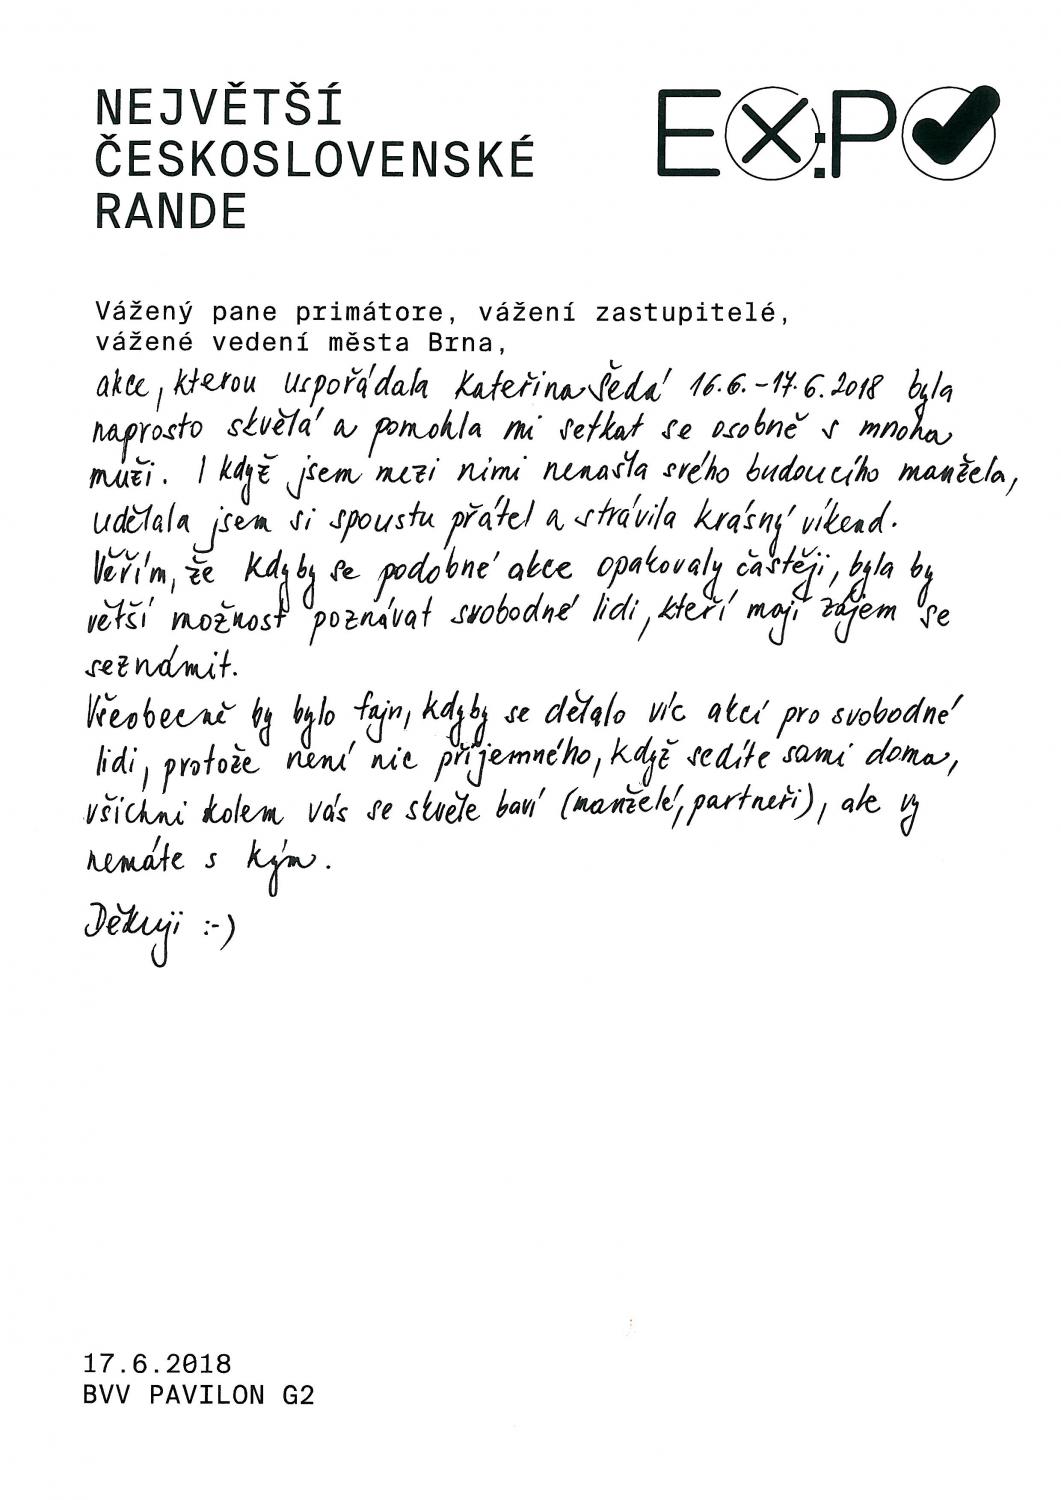 NEJVĚTŠÍ
ČESKOSLOVENSKÉ
RANDE
EX:PO
Vážený pane primátore, vážení zastupitelé,
vážené vedení města Brna,
akce, kterou uspořádala Kateřina Šedá 16.6.-17.6.2018 byla
naprosto skvělá a pomohla mi setkat se osobně s mnoha
muži. I když jsem mezi nimi nenašla svého budoucího manžela,
udělala jsem si spoustu přátel a strávila krásný víkend.
Věřím, že kdyby se podobné akce opakovaly častěji, byla by
větší možnost poznávat svobodné lidi, kteří mají zájem se
seznámit.
Všeobecně by bylo fajn, kdyby se dělalo víc akcí pro svobodné
lidi, protože není nic příjemného, když sedíte sami doma,
všichni kolem vás se skvěle baví (manželé, partneři), ale vy
nemáte s kým.
Děkuji :-)
17.6.2018
BVV PAVILON G2